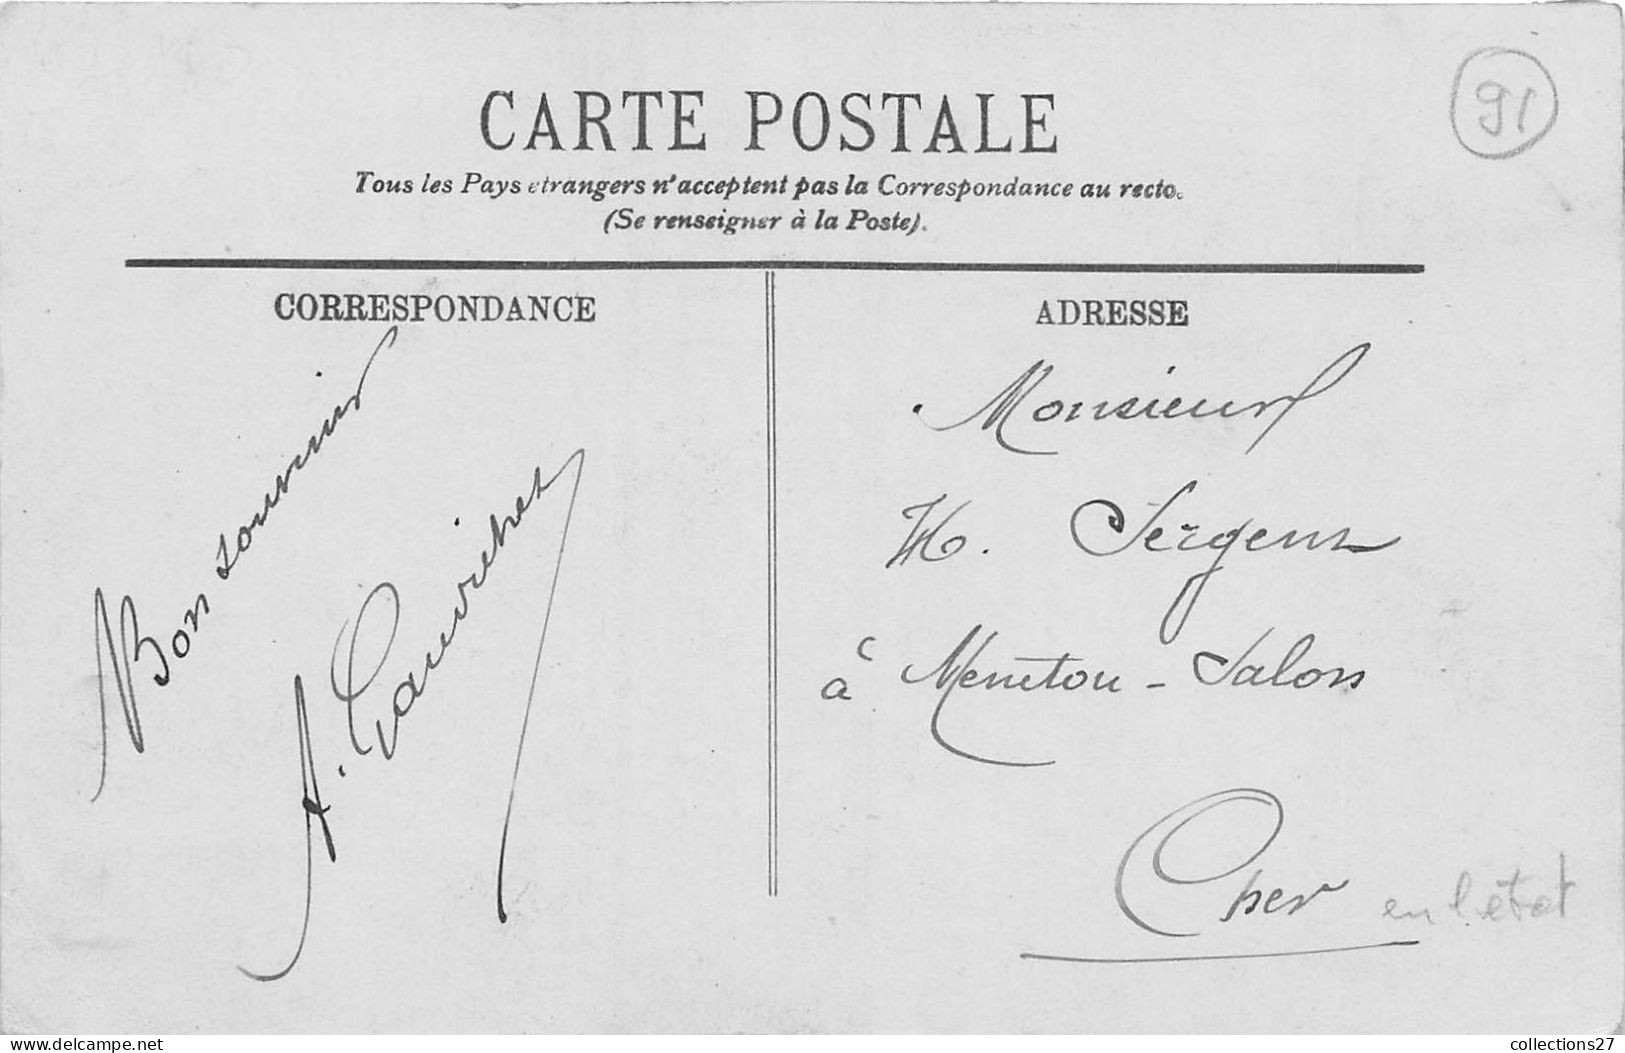 91
CARTE POSTALE
Tous les Pays etrangers n'acceptent pas la Correspondance au recto.
(Se renseigner à la Poste).
CORRESPONDANCE
Bon souvenir
A.
ADRESSE
Monsieur
H.
à Menetou-Salon
Cher
en l'état
www.delcampe.net
collections27